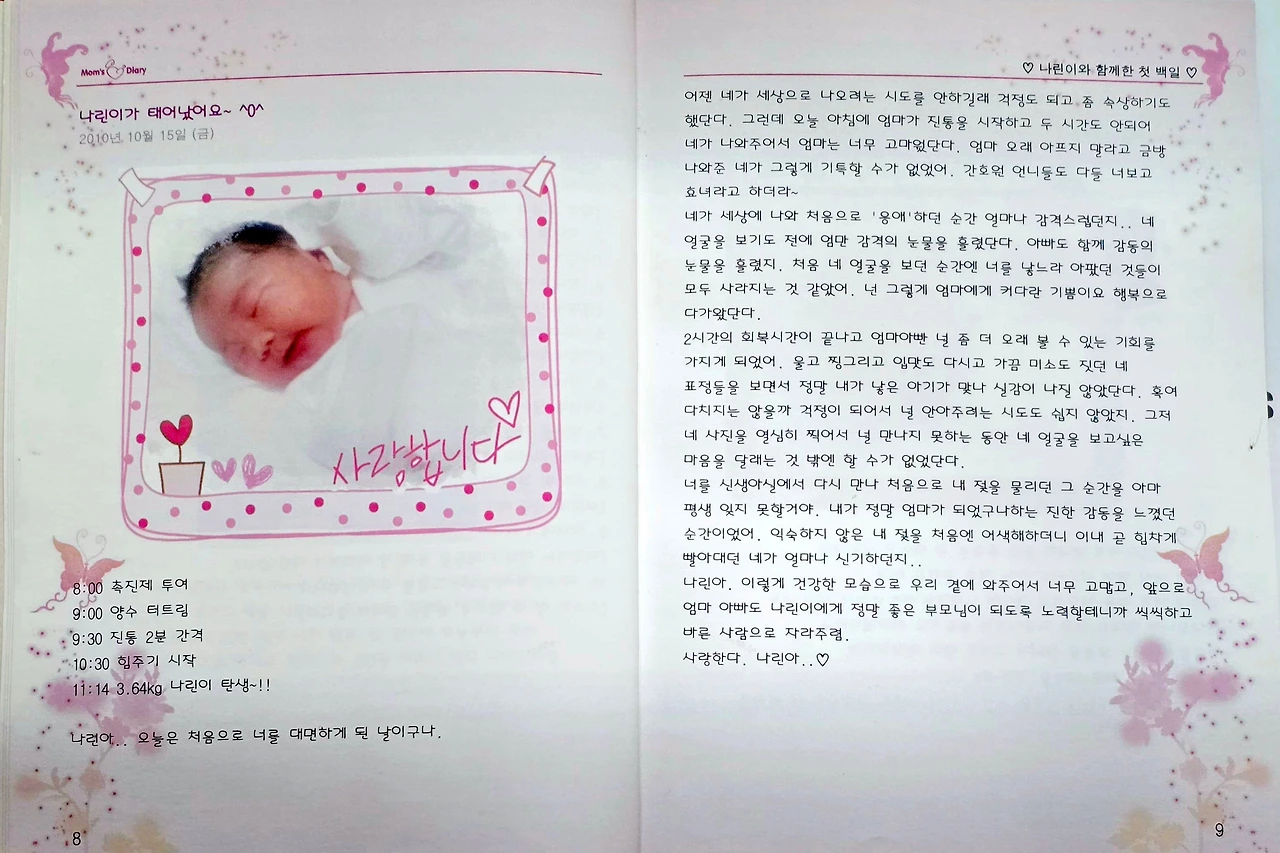 Mom's Diary
나린이가 태어났어요~ ^0^
2010년 10월 15일 (금)
사랑합니다
8:00 촉진제 투여
9:00 양수 터트림
9:30 진통 2분 간격
10:30 힘주기 시작
11:14 3.64kg 나린이 탄생~!!
나린아.. 오늘은 처음으로 너를 대면하게 된 날이구나.
8
♡ 나린이와 함께한 첫 백일 ♡
어젠 네가 세상으로 나오려는 시도를 안하길래 걱정도 되고 좀 속상하기도
했단다. 그런데 오늘 아침에 엄마가 진통을 시작하고 두 시간도 안되어
네가 나와주어서 엄마는 너무 고마웠단다. 엄마 오래 아프지 말라고 금방
나와준 네가 그렇게 기특할 수가 없었어. 간호원 언니들도 다들 너보고
효녀라고 하더라~
네가 세상에 나와 처음으로 '응애'하던 순간 얼마나 감격스럽던지.. 네
얼굴을 보기도 전에 엄만 감격의 눈물을 흘렸단다. 아빠도 함께 감동의
눈물을 흘렸지. 처음 네 얼굴을 보던 순간엔 너를 낳느라 아팠던 것들이
모두 사라지는 것 같았어. 넌 그렇게 엄마에게 커다란 기쁨이요 행복으로
다가왔단다.
2시간의 회복시간이 끝나고 엄마아빤 널 좀 더 오래 볼 수 있는 기회를
가지게 되었어. 울고 찡그리고 입맛도 다시고 가끔 미소도 짓던 네
표정들을 보면서 정말 내가 낳은 아기가 맞나 실감이 나질 않았단다. 혹여
다치지는 않을까 걱정이 되어서 널 안아주려는 시도도 쉽지 않았지. 그저
네 사진을 열심히 찍어서 널 만나지 못하는 동안 네 얼굴을 보고싶은
마음을 달래는 것 밖엔 할 수가 없었단다.
너를 신생아실에서 다시 만나 처음으로 내 젖을 물리던 그 순간을 아마
평생 잊지 못할거야. 내가 정말 엄마가 되었구나하는 진한 감동을 느꼈던
순간이었어. 익숙하지 않은 내 젖을 처음엔 어색해하더니 이내 곧 힘차게
빨아대던 네가 얼마나 신기하던지..
나린아. 이렇게 건강한 모습으로 우리 곁에 와주어서 너무 고맙고, 앞으로
엄마 아빠도 나린이에게 정말 좋은 부모님이 되도록 노력할테니까 씩씩하고
바른 사람으로 자라주렴.
사랑한다. 나린아..♡
9